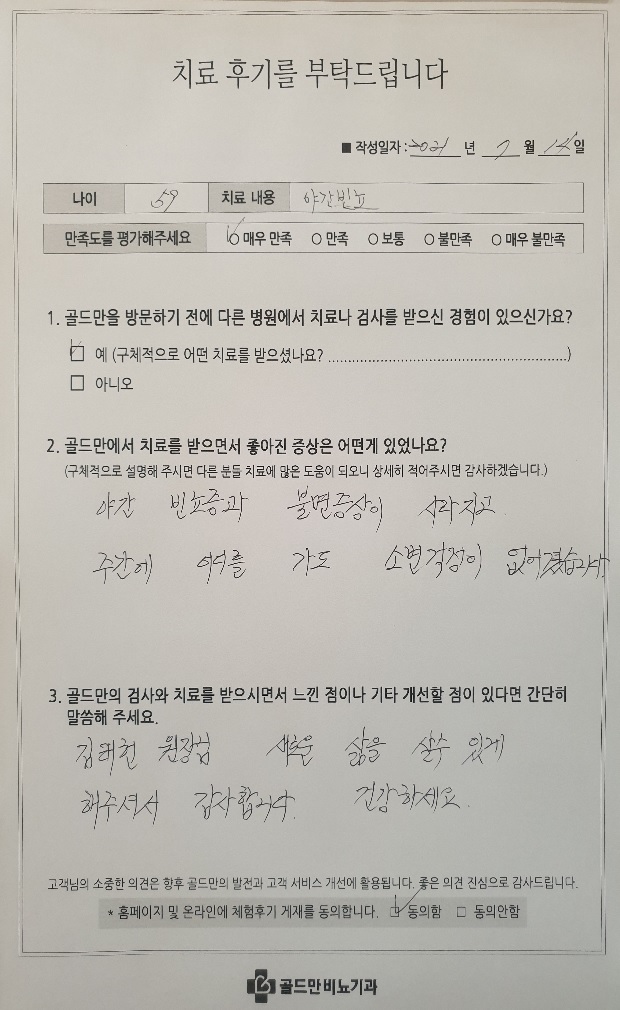 치료 후기를 부탁드립니다
■ 작성일자 : 2021 년 7 월 14 일
나이 59 치료 내용 야간빈뇨
만족도를 평가해주세요 매우 만족 만족 보통 불만족 매우 불만족
1. 골드만을 방문하기 전에 다른 병원에서 치료나 검사를 받으신 경험이 있으신가요?
예 (구체적으로 어떤 치료를 받으셨나요? ............................................................)
아니오
2. 골드만에서 치료를 받으면서 좋아진 증상은 어떤게 있었나요?
(구체적으로 설명해 주시면 다른 분들 치료에 많은 도움이 되오니 상세히 적어주시면 감사하겠습니다.)
야간 빈뇨증과 불면증상이 사라지고
주간에 어디를 가도 소변걱정이 없어졌습니다
3. 골드만의 검사와 치료를 받으시면서 느낀 점이나 기타 개선할 점이 있다면 간단히
말씀해 주세요.
김태헌 원장님 새로운 삶을 살수 있게
해주셔서 감사합니다. 건강하세요.
고객님의 소중한 의견은 향후 골드만의 발전과 고객 서비스 개선에 활용됩니다. 좋은 의견 진심으로 감사드립니다.
* 홈페이지 및 온라인에 체험후기 게재를 동의합니다. 동의함 동의안함
골드만비뇨기과